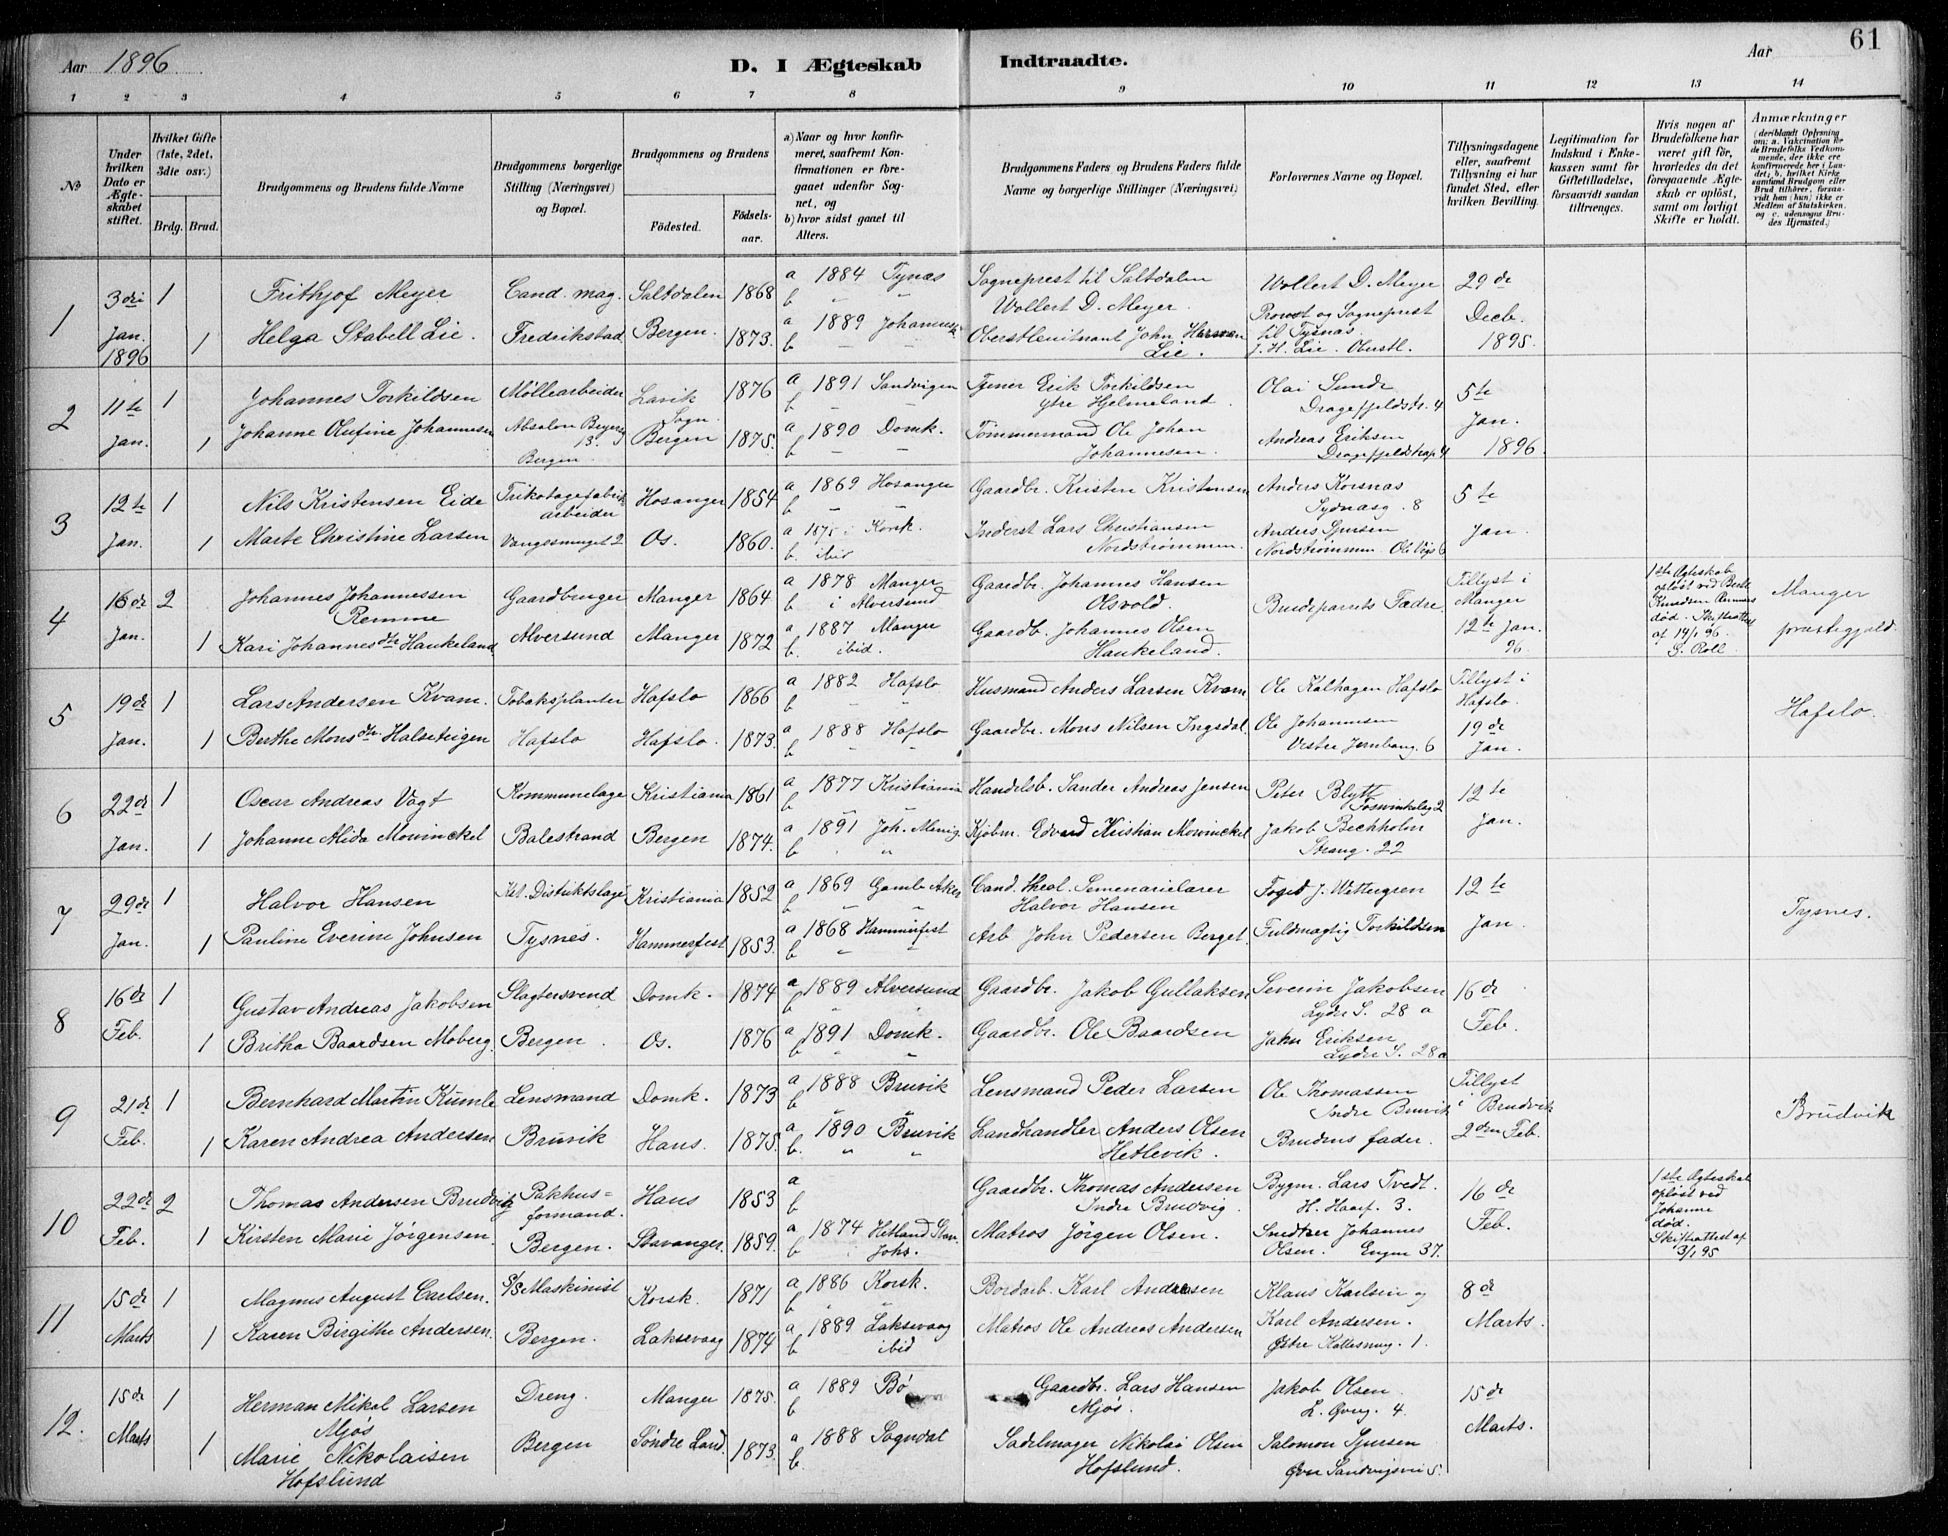 Aar 1896
D. I Ægteskab Indtraadte.
Aar
61
1 2 3 4 5 6 7 8 9 10 11 12 13 14
No
Under hvilken Dato er Ægteskabet stiftet.
Hvilket Gifte (1ste, 2det, 3die osv.)
Brdg. Brud.
Brudgommens og Brudens fulde Navne
Brudgommens borgerlige Stilling (Næringsvei) og Bopæl.
Brudgommens og Brudens
Födested. Födsels-aar.
a) Naar og hvor konfirmeret, saafremt Konfirmationen er foregaaet udenfor Sognet, og
b) hvor sidst gaaet til Alters.
Brudgommens Faders og Brudens Faders fulde Navne og borgerlige Stillinger (Næringsvei)
Forlovernes Navne og Bopæl.
Tillysningsdagene eller, saafremt Tillysning ei har fundet Sted, efter hvilken Bevilling.
Legitimation for Indskud i Enkekassen samt for Giftetilladelse, forsaavidt saadan tiltrænges.
Hvis nogen af Brudefolkene har været gift för, hvorledes da det foregaaende Ægteskab er oplöst, samt om lovligt Skifte er holdt.
Anmærkninger
1 3die Jan. 1896 1 Frithjof Meyer Cand. mag. Saltdalen 1868 a 1884 Tynæs b Sogneprest til Saltdalen Wollert D. Meyer. Wollert D. Meyer Provst og Sogneprest til Tysnæs 29de Decb. 1895.
1 Helga Stabell Lie. Fredrikstad Bergen. 1873. a 1889 b Oberstleitnant John Lie. J. H. Lie. Oberstl.
2 11te Jan. 1 Johannes Torkildsen Möllearbeider Lavik Sogn. 1876 a 1891 Sandvigen b Tjener Erik Torkildsen ytre Hjelmeland. Olai Sunde Dragefjeldstr. 4 5te Jan. 1896.
1 Johanne Olufine Johannesen Absalon Beyersg 13. Bergen Bergen 1875. a 1890 Domk. b Tömmermand Ole Johan Johannesen. Andreas Eriksen
3 12te Jan. 1 Nils Kristensen Eide Trikotagefabrikarbeider Hosanger 1854 a 1869 Hosanger b Gaardbr. Kristen Kristensen Anders Korsnæs Sydnæsg. 8 5te Jan.
1 Marte Christine Larsen Vangesmuget 2 Os. 1860. a 1875 i Korsk. b ibid Inderst Lars Christiansen Nordströmmen. Anders Sjursen Nordströmmen
4 Jan. 2 Johannes Johannessen Remme Gaardbruger Manger 1864 a 1878 Manger b i Alversund Gaardbr. Johannes Hansen Olsvold. Brudeparrets Fædre Tillyst i Manger 12te Jan. 96. 1ste Ægteskab oplöst ved död. Skifteattest af 14/1 96. Manger præstegjeld.
1 Kari Johannesdtr Haukeland Alversund Manger 1872 a 1887 Manger b. ibid. Gaardb. Johannes Olsen Haukeland.
5 19de Jan. 1 Lars Andersen Kvam. Tobaksplanter Hafslo 1866 a 1882 Hafslo b Husmand Anders Larsen Kvam Ole Kalhagen Hafslo Tillyst i Hafslo. 19de Jan. Hafslo.
1 Berthe Monsdtr Halseteigen Hafslo Hafslo. 1873. a 1888 Hafslo b Gaardbr. Mons Nilsen Ingsdal Ole Johannesen Vestre Jernbang. 6
6 22de Jan. 1 Oscar Andreas Vogt Kommunelæge Kristiania 1861 a 1877 Kristiania b Handelsb. Sander Andreas Jensen Peter Blytt Fosvinkelsg 2 12te Jan.
1 Johanne Alida Mowinckel Balestrand Bergen 1874. a 1891 Joh. Menig. b Kjöbm. Edvard Kristian Mowinckel Jakob Beckholm Strang. 22
7 29de Jan. 1 Halvor Hansen Kst. Distriktslæge Kristiania 1852 a 1869 Gamle Aker b Cand. theol. Semenarielærer Halvor Hansen Foged J. Wettergren 12te Jan. Tysnes.
1 Pauline Everine Johnsen Tysnes. Hammerfest 1853. a 1868 Hammerfest b Arb John Pedersen Berget. Fuldmægtig Torkildsen
8 16de Feb. 1 Gustav Andreas Jakobsen Slagtersvend Domk. 1874 a 1889 Alversund b Gaardbr. Jakob Gullaksen Severin Jakobsen Lyder S. 28 a 16de Feb.
1 Britha Baardsen Moberg. Bergen. Os. 1876 a 1891 Domk. b Gaardbr. Ole Baardsen Jakn Eriksen Lyder S. 28a
9 21de Feb. 1 Bernhard Martin Kumle Lensmand Domk. 1873 a 1888 Bruvik b Lensmand Peder Larsen Ole Thomassen Indre Bruvik Tillyst i Brudvik 2den Feb. Brudvik
1 Karen Andrea Andersen Bruvik Haus. 1875. a 1890 Bruvik b. Landhandler Anders Olsen Hetlevik. Brudens fader.
10 22de Feb. 2 Thomas Andersen Brudvig Pakhus=formand. Haus 1853 a b Gaardbr. Thomas Andersen Indre Brudvig. Bygm. Lars Tvedt. H. Haarf. 3. 16de Feb. 1ste Ægteskab oplöst ved Johanne död. Skifteattest af 3/1 95
1 Kirsten Marie Jörgensen. Bergen. Stavanger. 1859. a 1874 Hetland b Matros Jörgen Olsen. Snedker Johannes Olsen. Engen 37.
11 15de Marts 1 Magnus August Carlsen. S/S Maskinist Korsk. 1871 a 1886 Korsk. b Bordarb. Karl Andersen Klaus Karlsen og 8de Marts.
1 Karen Birgithe Andersen. Bergen. Laksevaag 1874 a 1889 Laksevaag b ibid Matros Ole Andreas Andersen Karl Andersen. Østre 1.
12. 15de Marts 1 Herman Mikal Larsen Mjös Dreng. Manger 1875. a 1889 Bø b Gaardbr. Lars Hansen Mjös. Jakob Olsen. L. Øvreg. 4. 15de Marts.
1 Marie Nikolaisen Hofslund Bergen Söndre Land. 1873. a 1888 Sogndal b. Sadelmager Nikolai Olsen Hofslund. Salomon Sjursen Øvre Sandvigsvei 5.